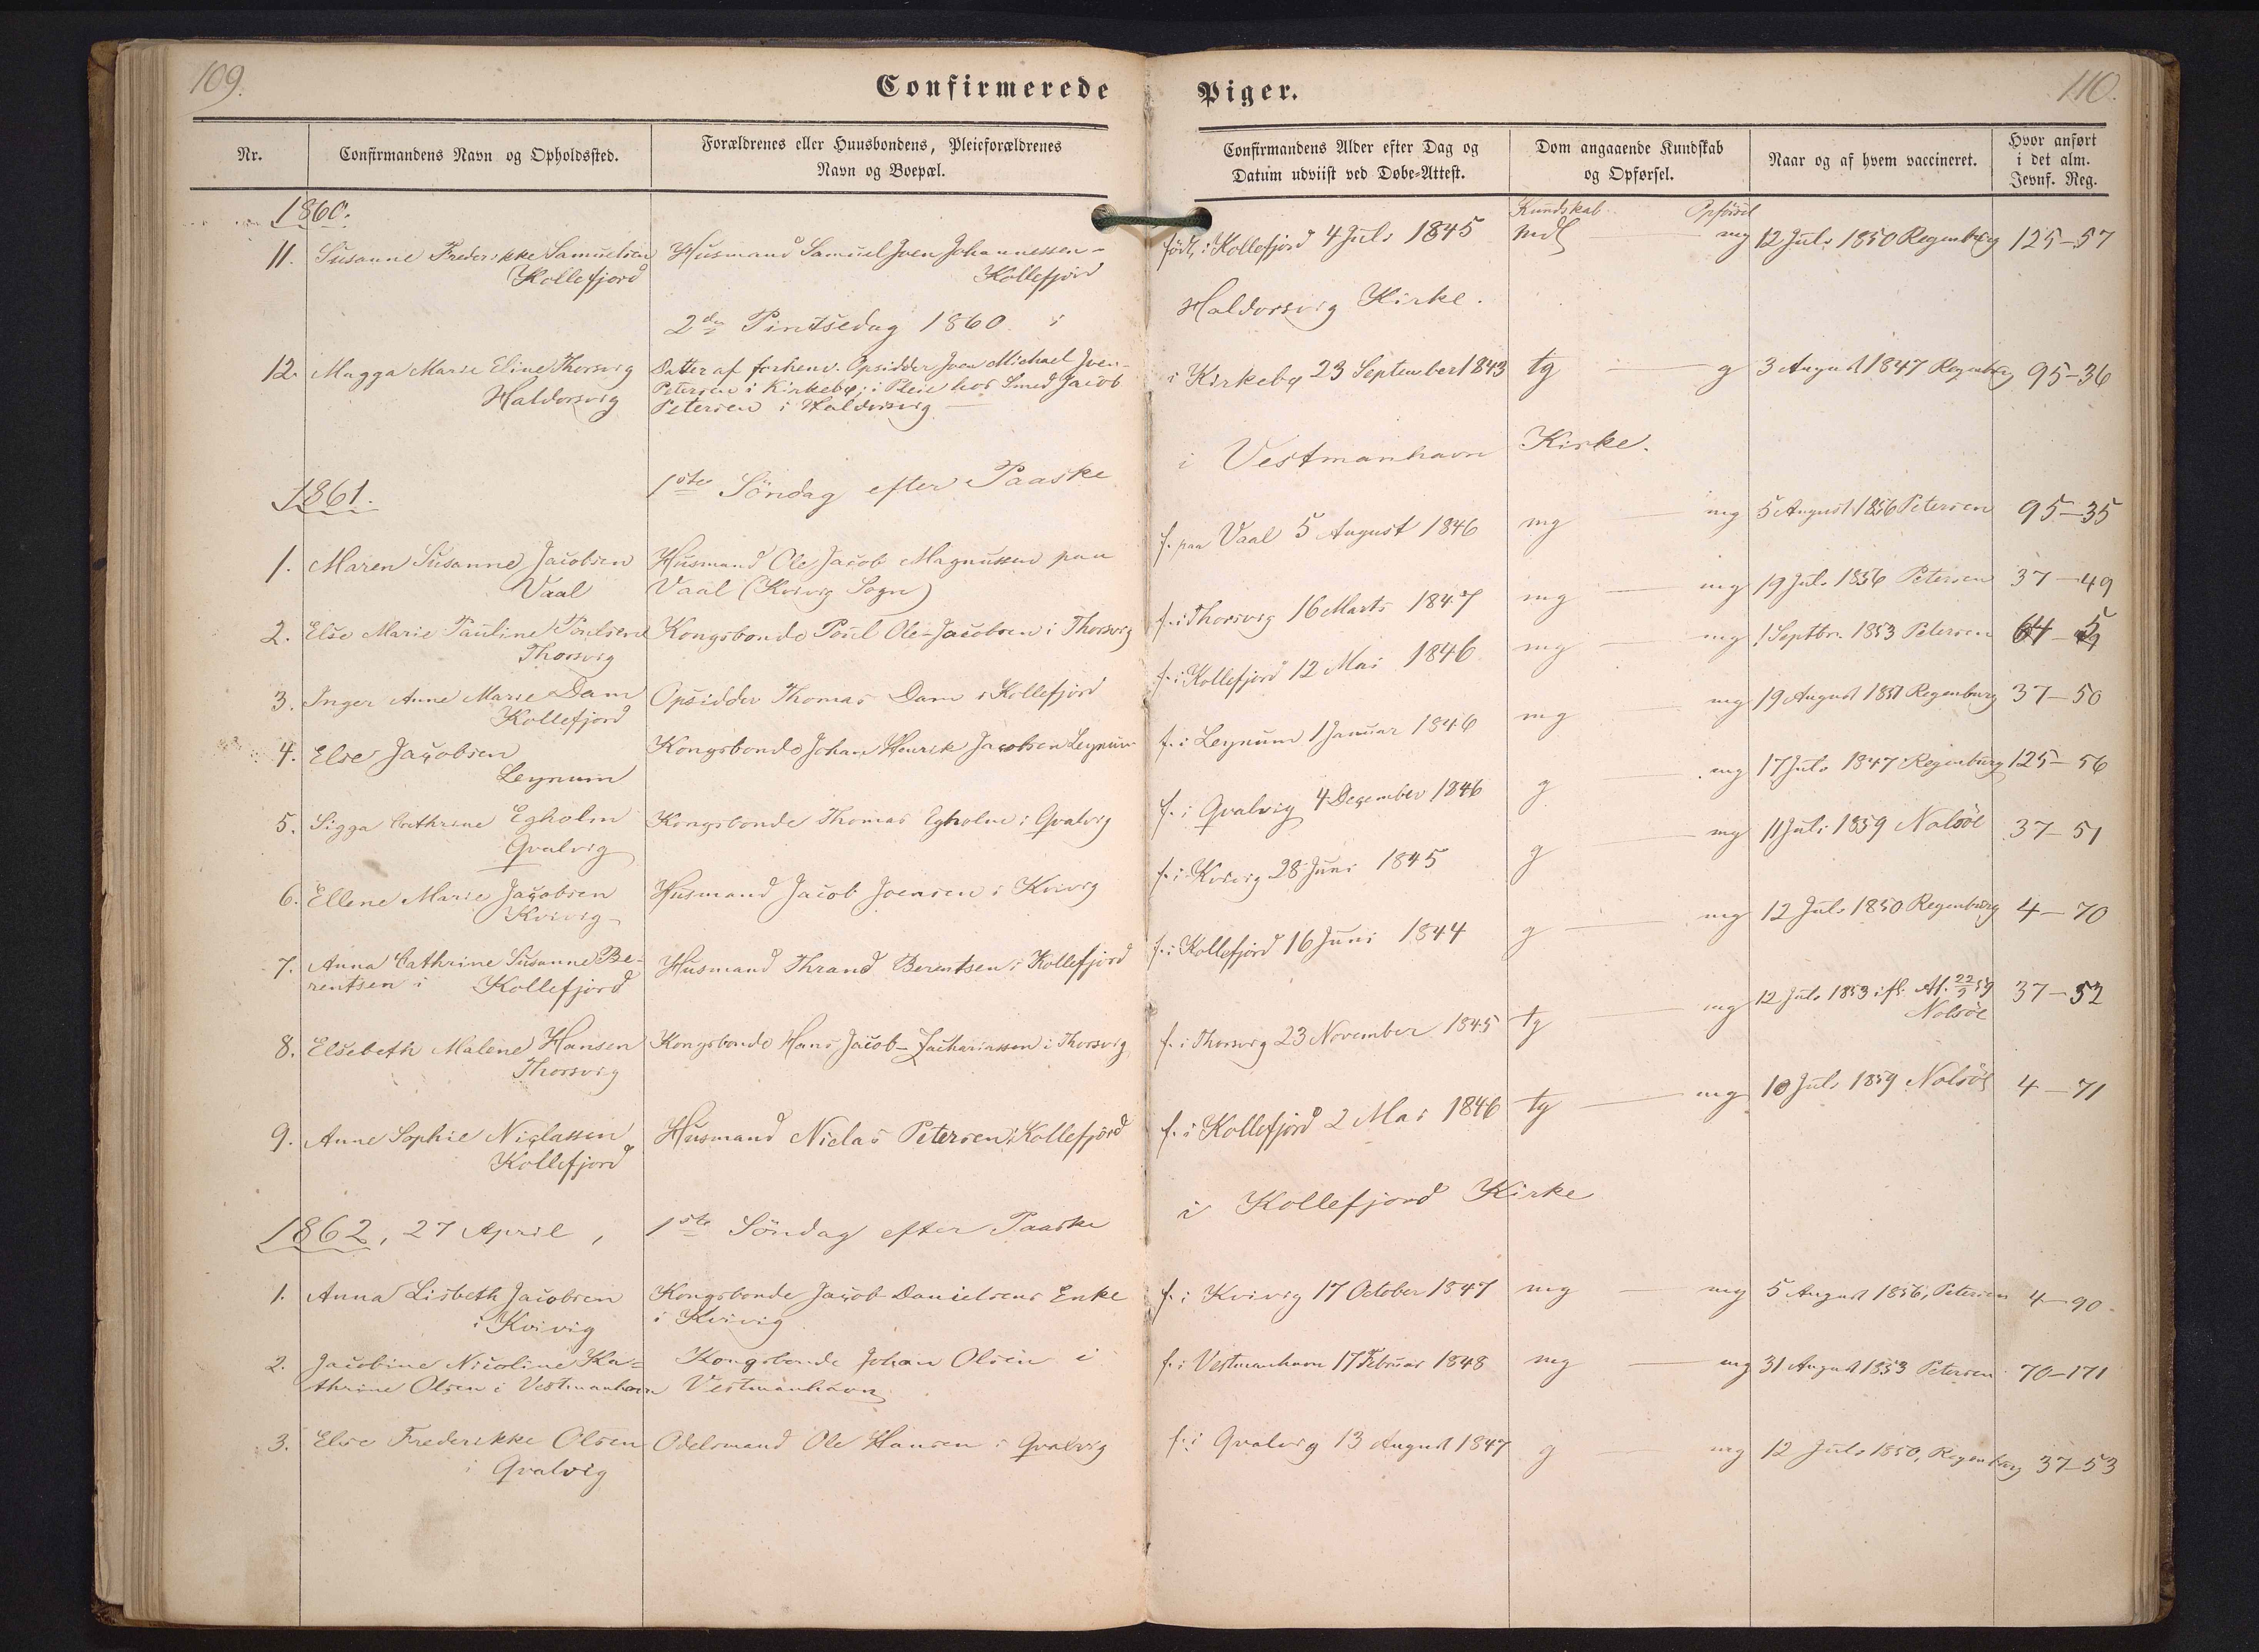 109.
Confirmerede
Nr.
Confirmandens Navn og Opholdssted.
Forældrenes eller Huusbondens, Pleieforældrenes
Navn og Boepæl.
1860.
11. Susanne Frederikke Samuelsen Husmand Samuel Joen Johannessen -
Kollefjord Kollefjord
2den Pintsedag 1860 i
12. Magga Marie Eline Thorsvig Datter af forhenv. Opsidder Joen Michael Joen-
Petersen i Kirkebø; i Pleie hos Smed Jacob
Haldorsvig Petersen i Haldorsvig
1861. 1ste Söndag efter Paaske
1. Maren Susanne Jacobsen Husmand Ole Jacob Magnussen paa
Vaal Vaal (Kvivig Sogn)
2. Else Marie Pauline Poulsen Kongsbonde Poul Ole-Jacobsen i Thorsvig
Thorsvig
3. Inger Anne Marie Dam Opsidder Thomas Dam i Kollefjord
Kollefjord
4. Else Jacobsen Kongsbonde Johan Henrik Jacobsen Leynum
Leynum
5. Sigga Cathrine Egholm Kongsbonde Thomas Egholm i Qvalvig
Qvalvig
6. Ellene Marie Jacobsen Husmand Jacob Joensen i Kvivig
Kvivig
7. Anna Cathrine Susanne Be- Husmand Thrand Berentsen i Kollefjord
rentsen i Kollefjord
8. Elsebeth Malene Hansen Kongsbonde Hans Jacob-Zachariassen i Thorsvig
Thorsvig
9. Anne Sophie Niclassen Husmand Niclas Petersen i Kollefjord
Kollefjord
1862, 27 April, 1ste Söndag efter Paaske
1. Anna Lisbeth Jacobsen Kongsbonde Jacob Danielsens Enke
i Kvivig i Kvivig
2. Jacobine Nicoline Ka- Kongsbonde Johan Olsen i
thrine Olsen i Vestmanhavn Vestmanhavn
3. Else Frederikke Olsen Odelsmand Ole Hansen i Qvalvig
i Qvalvig
110.
Piger.
Confirmandens Alder efter Dag og
Datum udviist ved Døbe-Attest.
Dom angaaende Kundskab
og Opførsel.
Naar og af hvem vaccineret.
Hvor anført
i det alm.
Jevnf. Reg.
Kundskab Opförsel
födt i Kollefjord 4 Juli 1845 mdl mg 12 Juli 1850 Regenburg 125-57
Haldorsvig Kirke.
i Kirkebø 23 September 1843 tg g 3 August 1847 Regenburg 95-36
i Vestmanhavn Kirke.
f. paa Vaal 5 August 1846 mg mg 5 August 1856 Petersen 95-35
f. i Thorsvig 16 Marts 1847 mg mg 19 Juli 1856 Petersen 37-49
f. i Kollefjord 12 Mai 1846 mg mg 1 Septbr. 1853 Petersen
f. i Leynum 1 Januar 1846 mg mg 19 August 1851 Regenburg 37-50
f. i Qvalvig 4 December 1846 g mg 17 Juli 1847 Regenburg 125-56
f. i Kvivig 28 Juni 1845 g mg 11 Juli 1859 Nolsöe 37-51
f. i Kollefjord 16 Juni 1844 g mg 12 Juli 1850 Regenburg 4-70
f. i Thorsvig 23 November 1845 tg mg 12 Juli 1853 ifl. At. 22/5 59 37-52
Nolsöe
f. i Kollefjord 2 Mai 1846 tg mg 10 Juli 1859 Nolsöe 4-71
i Kollefjord Kirke
f. i Kvivig 17 October 1847 mg mg 5 August 1856, Petersen 4-90
f. i Vestmanhavn 17 Februar 1848 mg mg 31 August 1853 Petersen 70-171
f. i Qvalvig 13 August 1847 g mg 12 Juli 1850, Regenburg 37-53